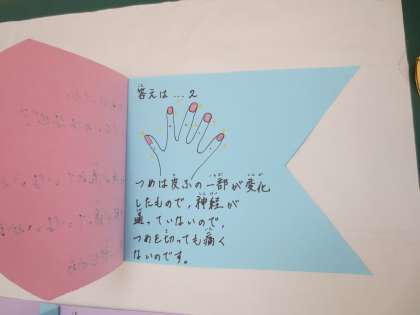 答えは…2
つめは皮ふの一部が変化
したもので，神経が
通っていないので，
つめを切っても痛く
ないのです。